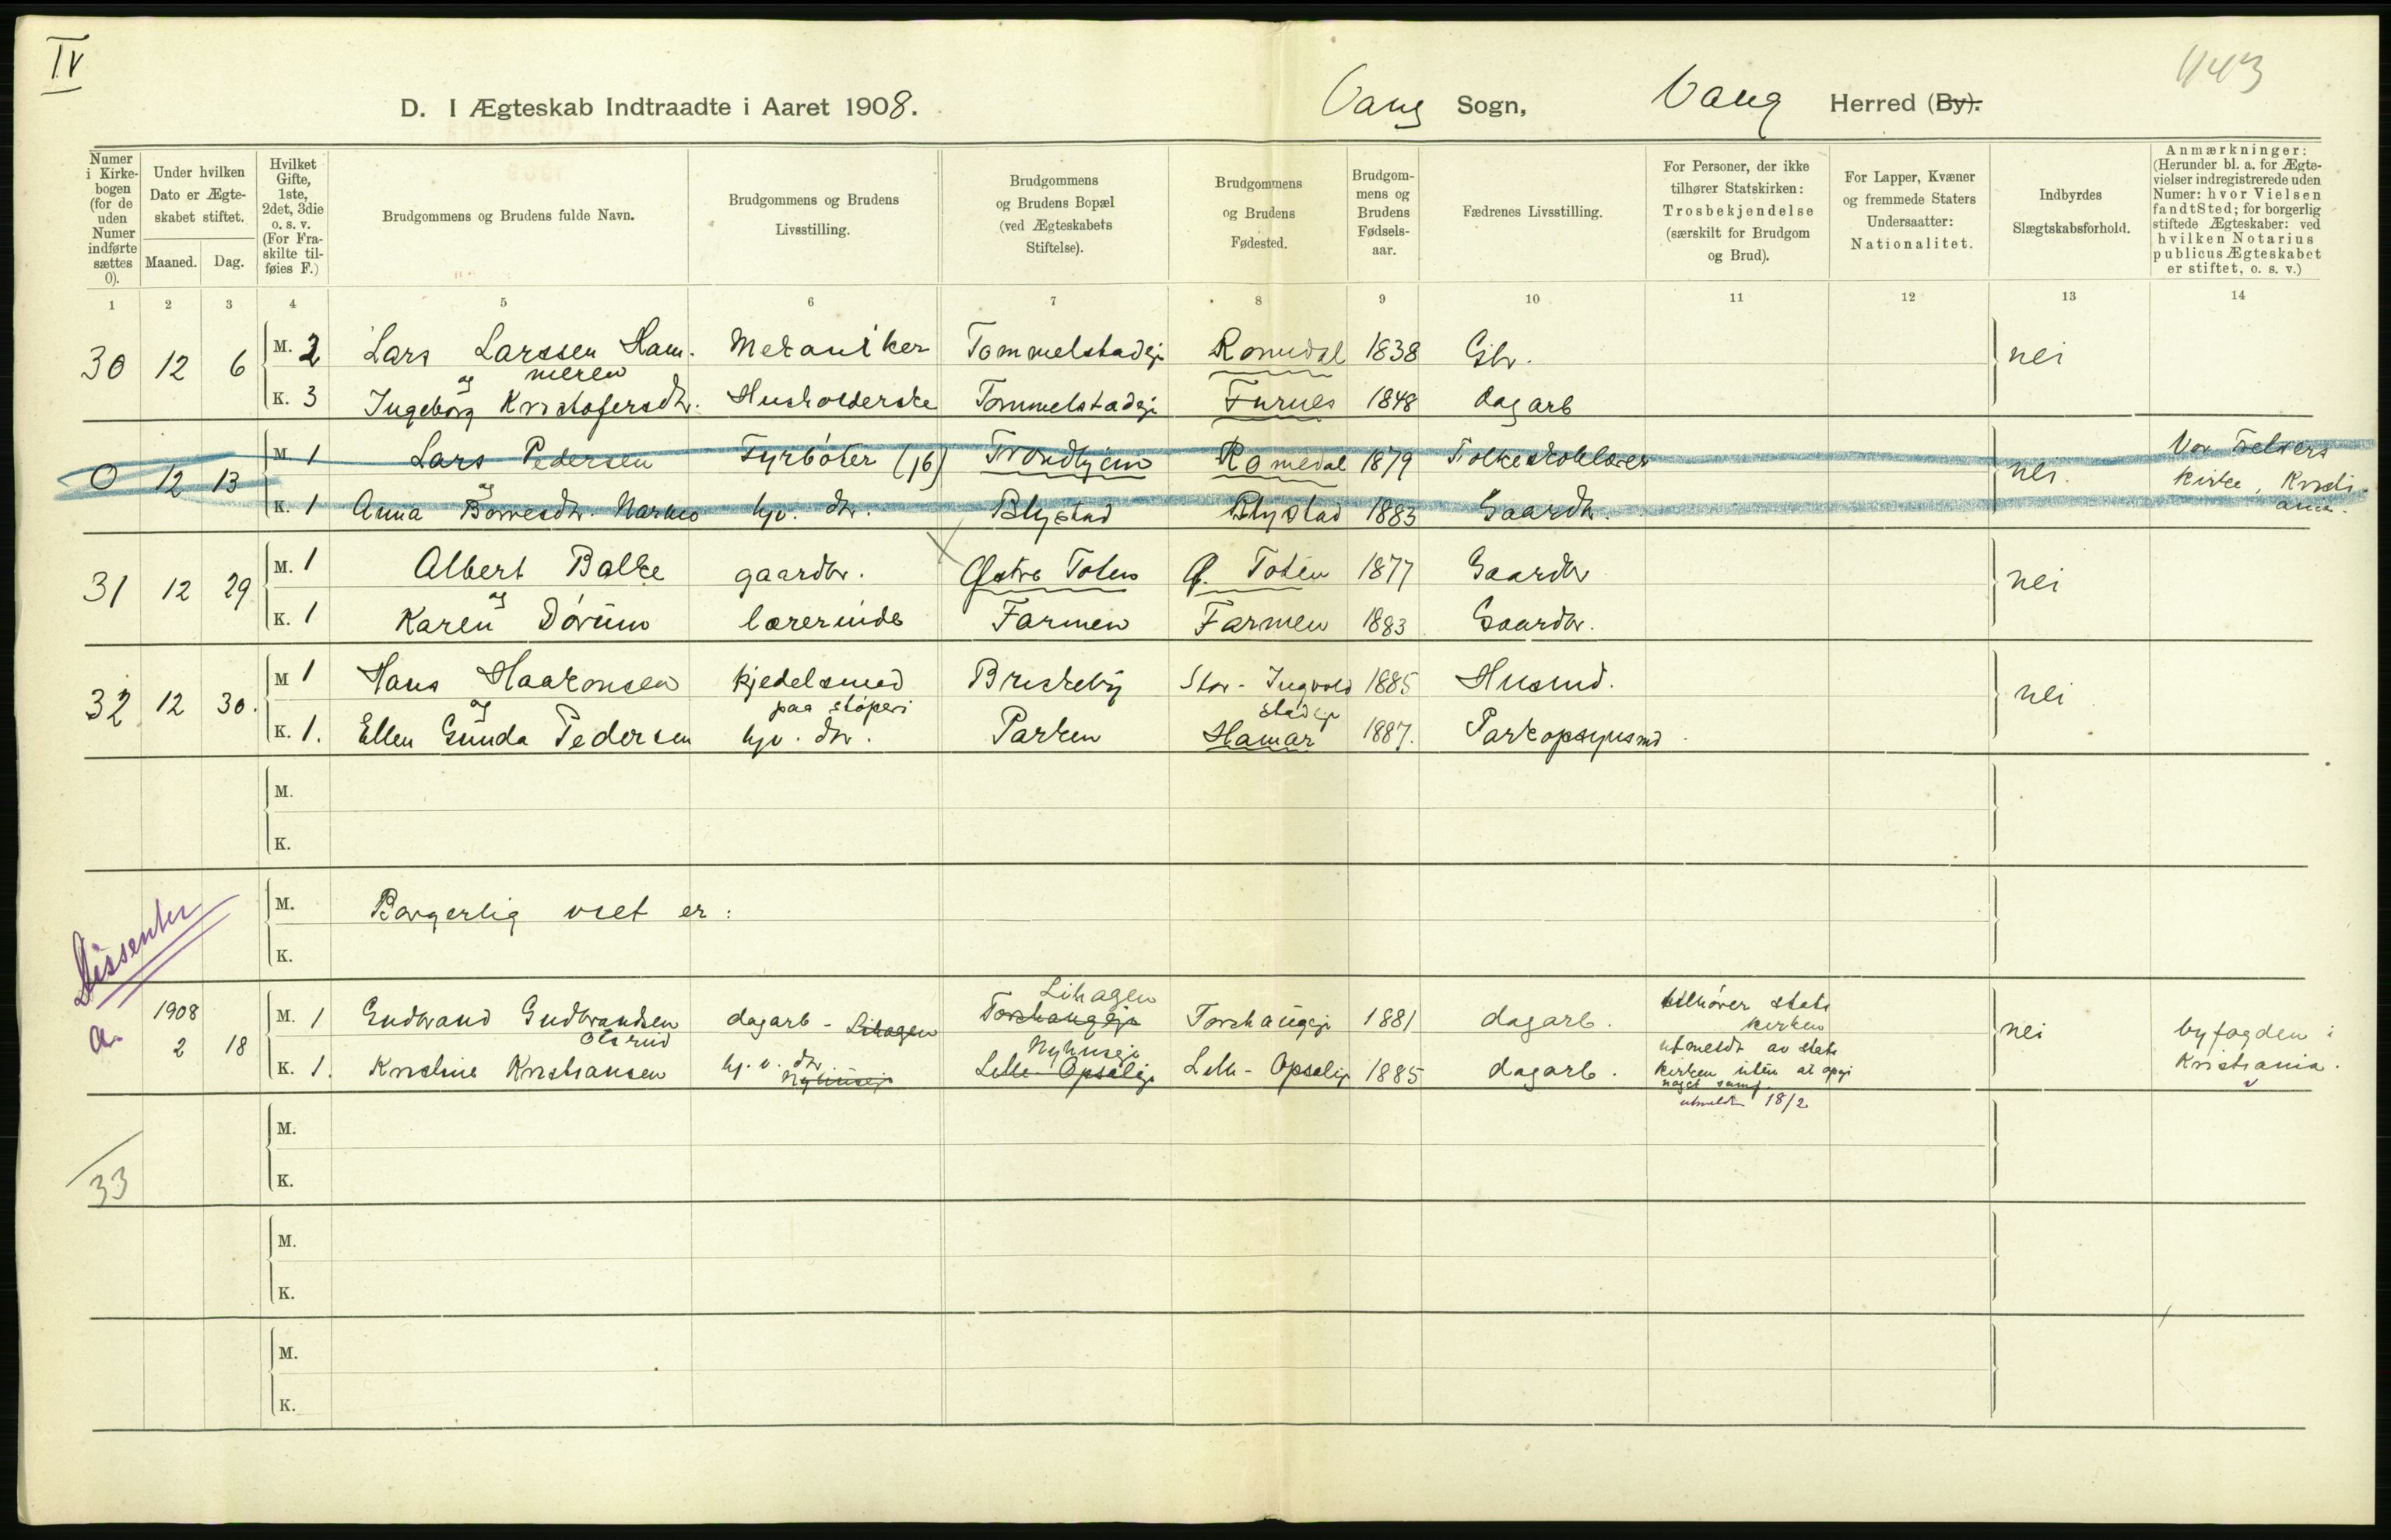 IV
443
D. I Ægteskab Indtraadte i Aaret 1908. Vang Sogn, Vang Herred (By).
Numer i Kirkebogen (for de uden Numer indførte sættes 0).
Under hvilken Dato er Ægteskabet stiftet.
Maaned. Dag.
Hvilket Gifte, 1ste, 2det, 3die o. s. v. (For Fraskilte tilføies F.)
Brudgommens og Brudens fulde Navn.
Brudgommens og Brudens Livsstilling.
Brudgommens og Brudens Bopæl (ved Ægteskabets Stiftelse).
Brudgommens og Brudens Fødested.
Brudgommens og Brudens Fødselsaar.
Fædrenes Livsstilling.
For Personer, der ikke tilhører Statskirken: Trosbekjendelse (særskilt for Brudgom og Brud).
For Lapper, Kvæner og fremmede Staters Undersaatter: Nationalitet.
Indbyrdes Slægtskabsforhold.
Anmærkninger: (Herunder bl. a. for Ægtevielser indregistrerede uden Numer: hvor Vielsen fandt Sted; for borgerlig stiftede Ægteskaber: ved hvilken Notarius publicus Ægteskabet er stiftet, o. s. v.)
1 2 3 4 5 6 7 8 9 10 11 12 13 14
30 12 6 M. 2 Lars Larssen Ham. Mekaniker Tommelstadeje Romedal 1838 Gbr. nei
og meren
K. 3 Ingeborg Kristofersdtr. Husholderske Tommelstadeje Furnes 1848 dagarb
0 12 13 M. 1 Lars Pedersen Fyrbøter (j6) Trondhjem Romedal 1879 Folkeskolelærer nei. Vor Frelsers
og kirke, Kristi
K. 1 Anna Borresdtr. hjv. dtr. Blystad Blystad 1883 Gaardbr. ania.
31 12 29 M. 1 Albert Balke gaardbr. Østre Toten Ø. Toten 1877 Gaardbr nei
og
K. 1 Karen Dørum lærerinde Farmen Farmen 1883 Gaardbr.
32 12 30. M 1 Hans Haakonsen kjedelsmed Briskeby Stor-Ingvold 1885 Husmd. nei
og paa støperi stadeje
K. 1. Ellen Gunda Pedersen hjv. dtr. Parken Hamar 1887. Parkopsynsmd.
M.
K.
M. Borgerlig viet er:
K.
Dissenter
Lihagen
a. 1908 M. 1 Gudbrand Gudbrandsen dagarb - Lihagen Torshaugeje Torshaugeje 1881 dagarb. tilhører stats
Olsrud kirken
2 18 nei byfogden i
Nyhuseje utmeldt av stats
K. 1. Kristine Kristiansen hj. v. dtr Nyhuseje Lille-Opsaleje Lille-Opsaleje 1885 dagarb. kirken uten at opgi Kristiania.
noget samf.
utmeldt 18/2
M.
K.
33
M.
K.
M.
K.